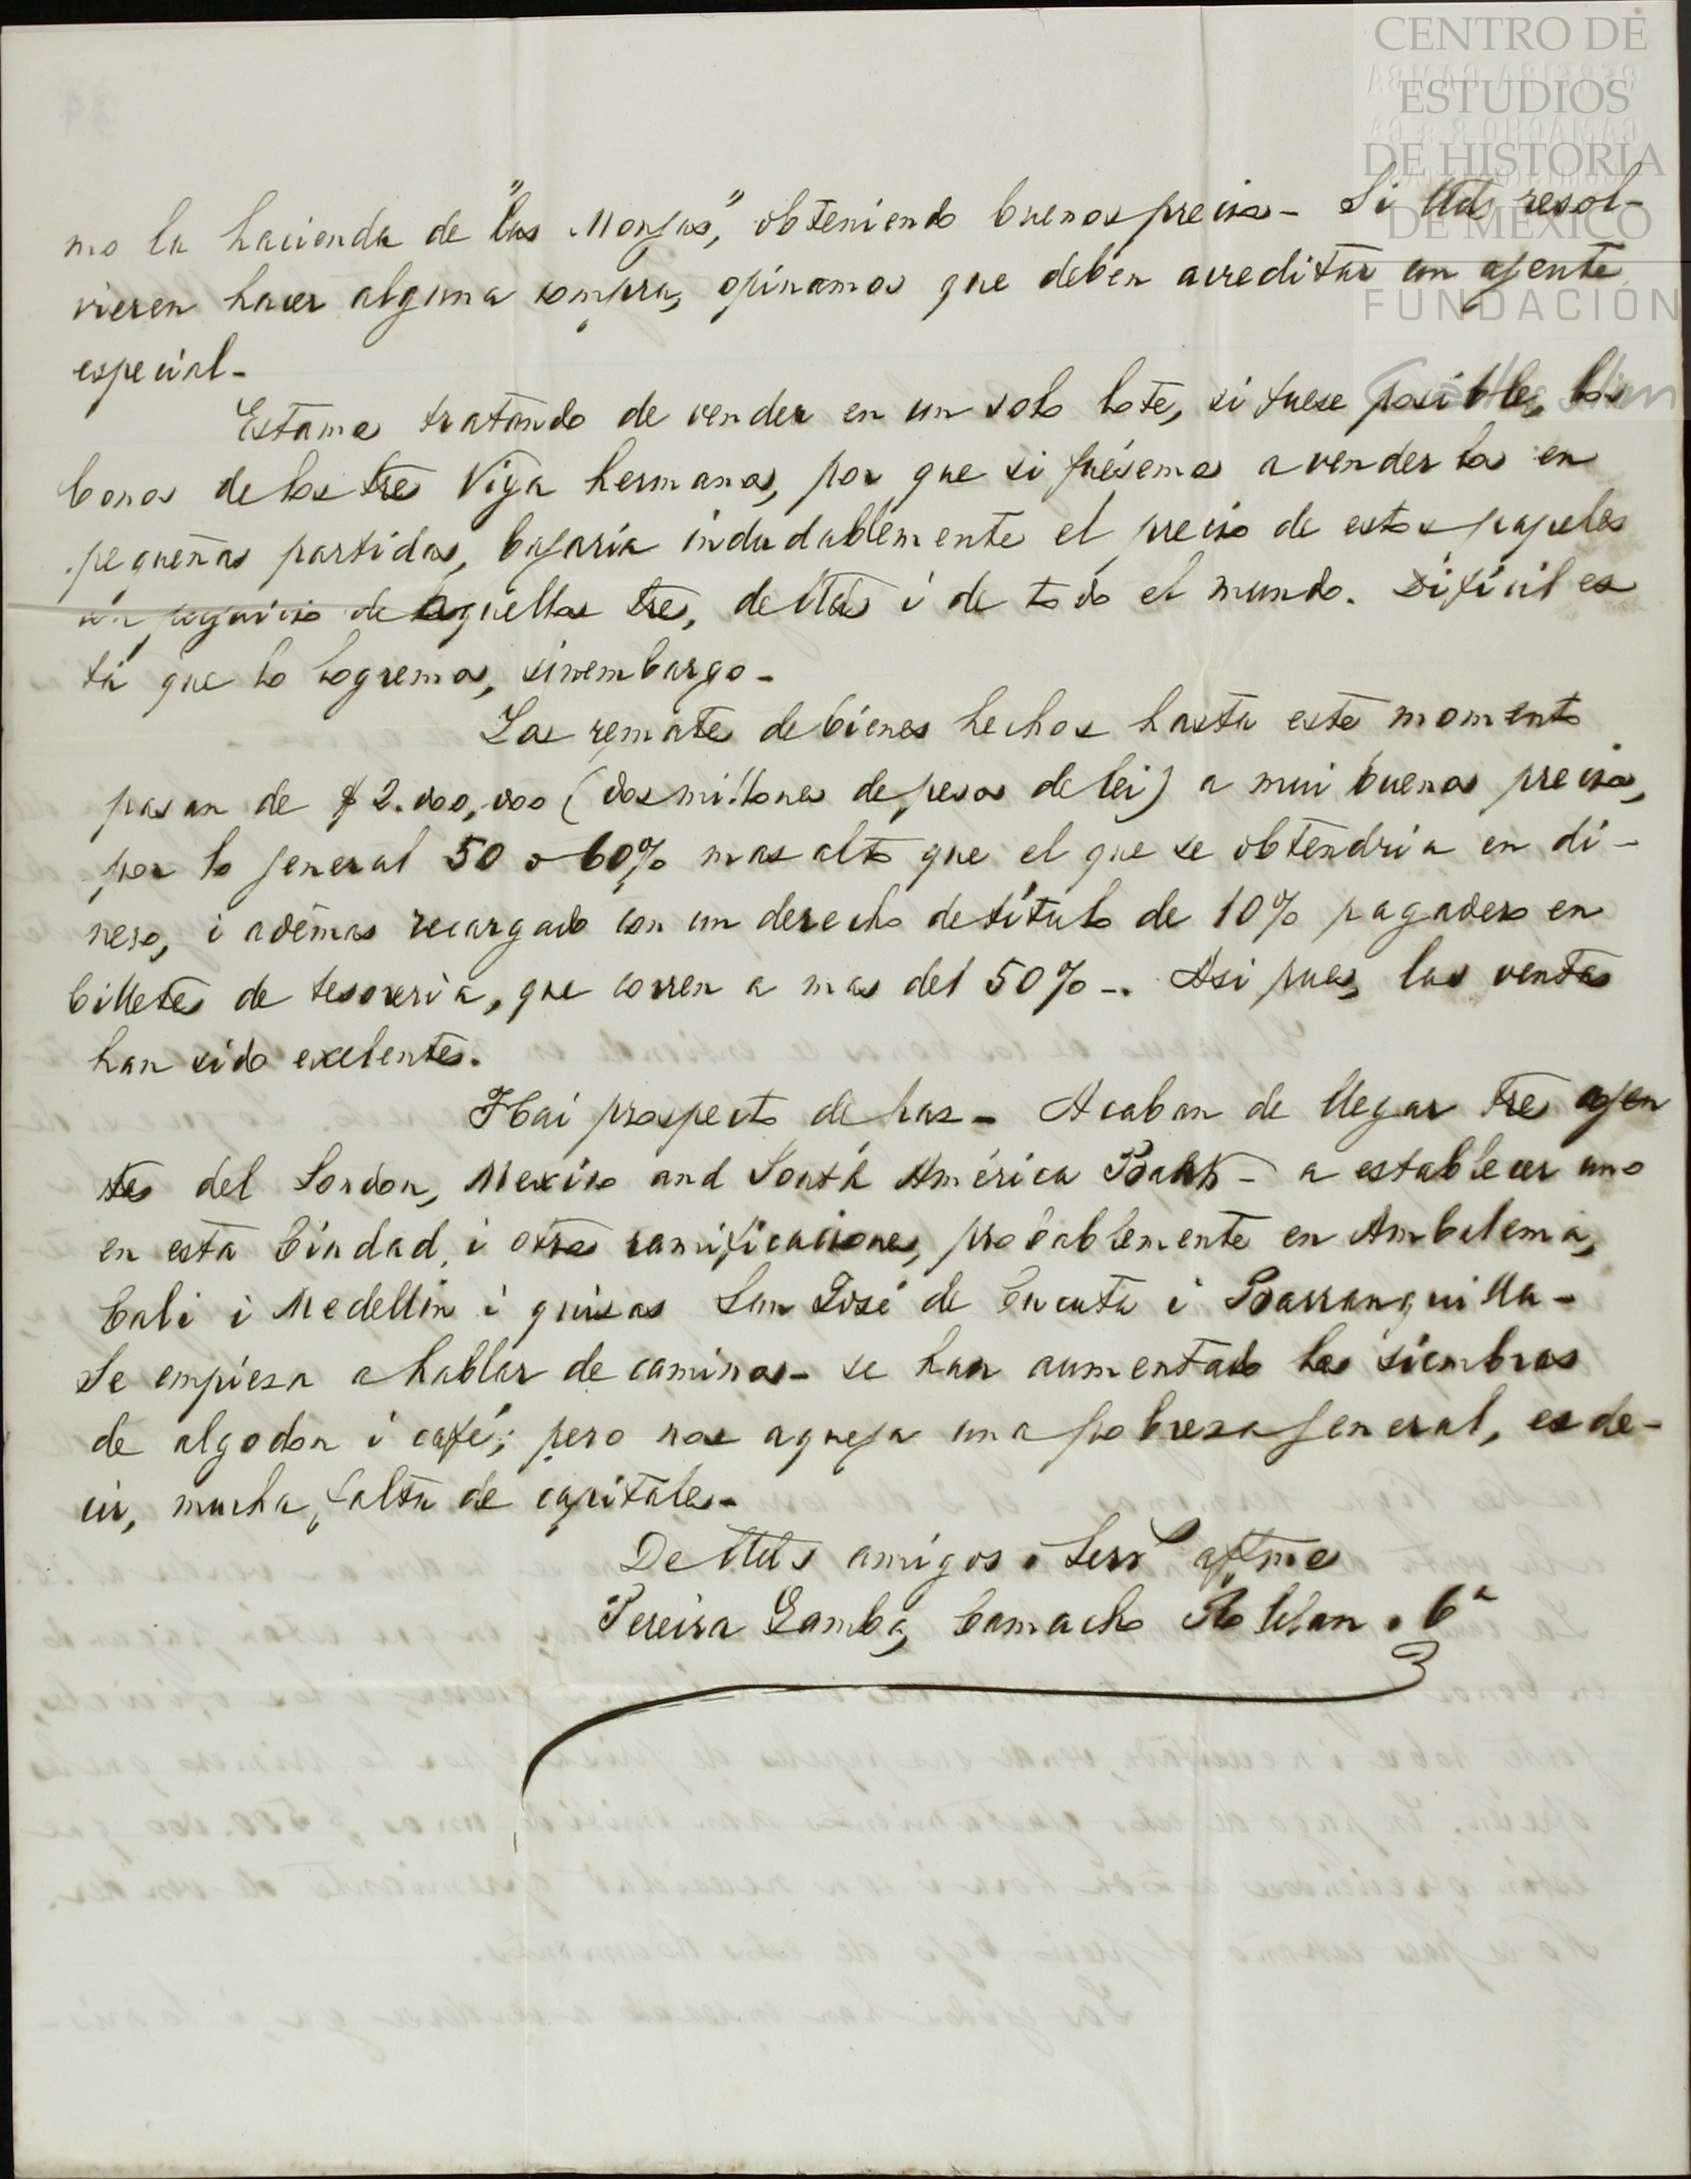 CENTRO DE
ESTUDIOS
DE HISTORIA
DE MEXICO
FUNDACIÓN
mo la hacienda de "las Monjas", obteniendo buenos precios - Si Uds resol-
vieren hacer alguna compra, opinamos que deben acreditar un ajente
especial -
Estamos tratando de vender en un solo lote, si fuese posible, los
bonos de los tres Viga hermanos, por que si fuésemos a venderlos en
pequeñas partidas, bajaria indudablemente el precio de estos papeles
en perjuicio de aquellos tres, de Uds i de todo el mundo. Dificil es
tá que lo logremos, sinembargo -
Los remates de bienes hechos hasta este momento
pasan de $2.000,000 (dos millones de pesos de lei) a mui buenos precios,
por lo jeneral 50 o 60% mas alto que el que se obtendria en di-
nero, i ademas recargado con un derecho de título de 10% pagadero en
billetes de tesoreria, que corren a mas del 50% -. Asi pues, las ventas
han sido exelentes.
Hai prospecto de paz - Acaban de llegar tres ajen
tes del London, Mexico and South América Bank - a establecer uno
en esta Ciudad, i otras ramificaciones, probablemente en Ambalema,
Cali i Medellin i quizas San José de Cucuta i Barranquilla -
Se empieza a hablar de caminos - se han aumentado las siembras
de algodon i café; pero nos aqueja una pobreza jeneral, es de-
cir, mucha falta de capitales -
De Uds amigos i Serv afmos
Pereira Gamba, Camacho Roldan i Ca